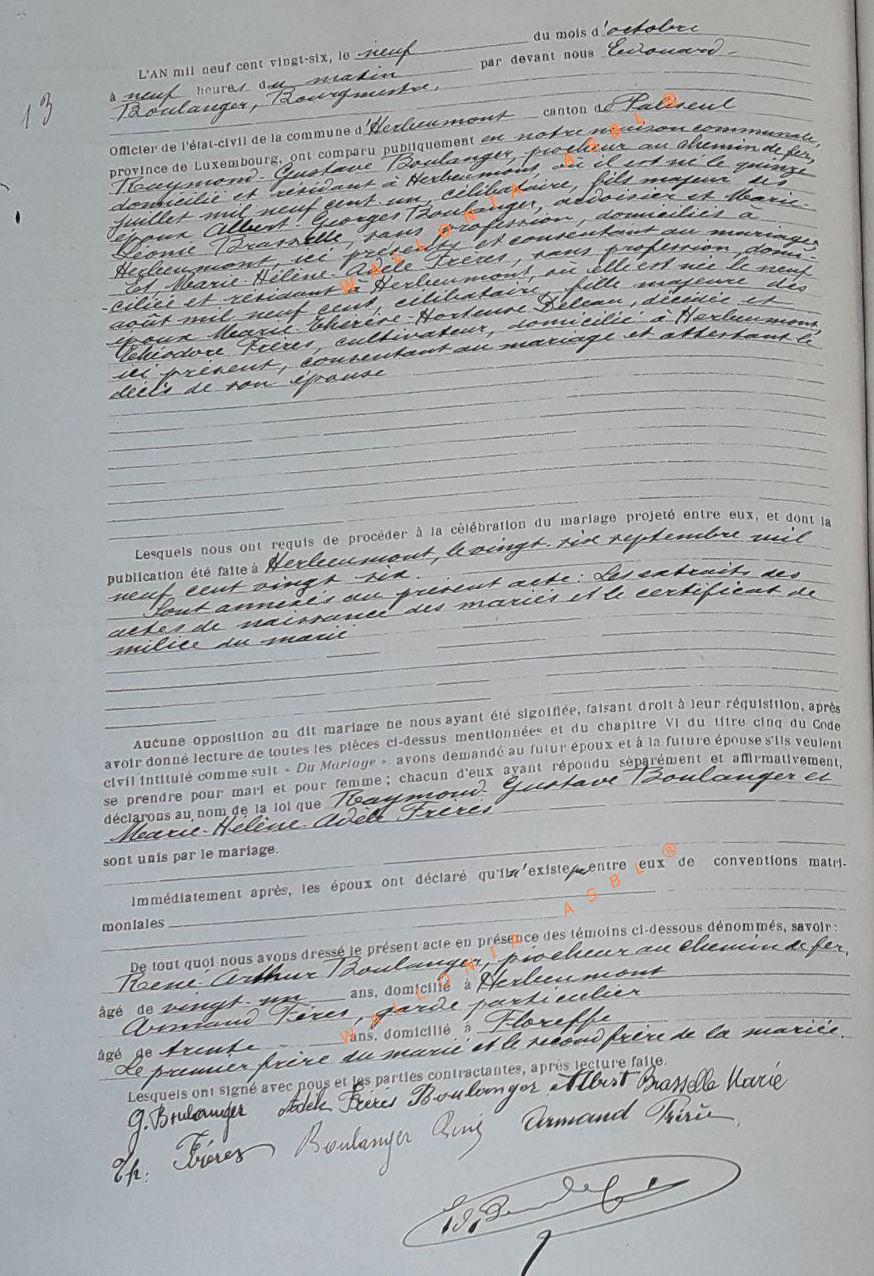 13
L'AN mil neuf cent vingt-six, le neuf du mois d'octobre
à neuf heures du matin par devant nous Edouard
Boulanger, Bourgmestre,
Officier de l'état-civil de la commune d'Herbeumont canton de Paliseul
province de Luxembourg, ont comparu publiquement en notre maison communale,
Raymond Gustave Boulanger, piocheur au chemin de fer,
domicilié et résidant à Herbeumont, où il est né le quinze
juillet mil neuf cent un, célibataire, fils majeur des
époux Albert Georges Boulanger, ardoisier et Marie-
Léonie Brasselle, sans profession, domiciliés à
Herbeumont, ici présents et consentant au mariage
Et Marie-Hélène-Adèle Frères, sans profession, domi-
-ciliée et résidant à Herbeumont, où elle est née le neuf
août mil neuf cent, célibataire, fille majeure des
époux Marie-Thérèse-Hortense Deleau, décédée et
Théodore Frères, cultivateur, domicilié à Herbeumont,
ici présent, consentant au mariage et attestant le
décès de son épouse
Lesquels nous ont requis de procéder à la célébration du mariage projeté entre eux, et dont la
publication été faite à Herbeumont, le vingt-six septembre mil
neuf cent vingt six.
Sont annexés au présent acte: Les extraits des
actes de naissance des mariés et le certificat de
milice du marié
Aucune opposition au dit mariage ne nous ayant été signifiée, faisant droit à leur réquisition, après
avoir donné lecture de toutes les pièces ci-dessus mentionnées et du chapitre VI du titre cinq du Code
civil intitulé comme suit « Du Mariage », avons demandé au futur époux et à la future épouse s'ils veulent
se prendre pour mari et pour femme; chacun d'eux ayant répondu séparément et affirmativement,
déclarons au nom de la loi que Raymond Gustave Boulanger et
Marie-Hélène-Adèle Frères
sont unis par le mariage.
Immédiatement après, les époux ont déclaré qu'il n'existe pas entre eux de conventions matri-
moniales
De tout quoi nous avons dressé le présent acte en présence des témoins ci-dessous dénommés, savoir:
René Arthur Boulanger, piocheur au chemin de fer,
âgé de vingt-un ans, domicilié à Herbeumont
Armand Frères, garde particulier
âgé de trente ans, domicilié à Floreffe
Le premier frère du marié et le second frère de la mariée.
Lesquels ont signé avec nous et les parties contractantes, après lecture faite.
G. Boulanger Adèle Frères Boulanger Albert Brasselle Marie
Th: Frères Boulanger René Armand Frères
WALLONIA ASBL®
WALLONIA ASBL®